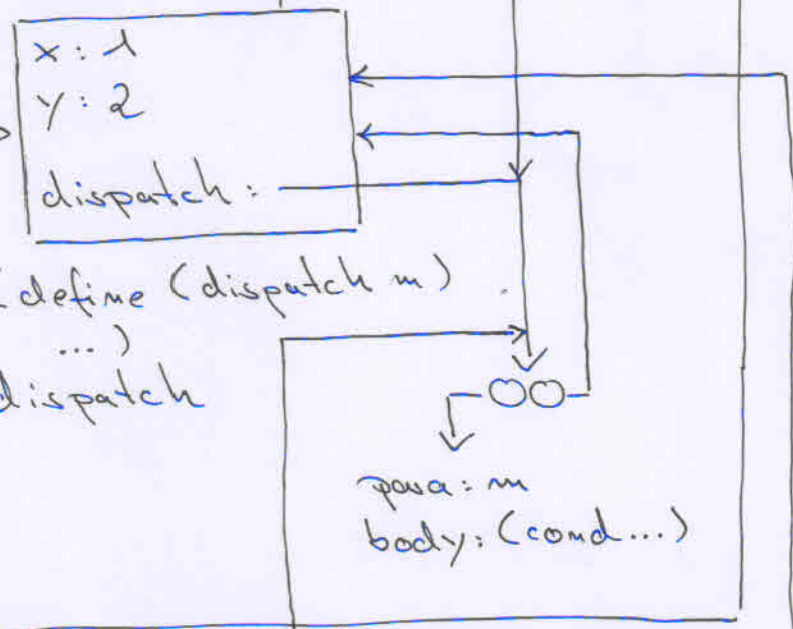 x: 1
y: 2
dispatch:
(define (dispatch m)
...)
dispatch
para: m
body: (cond...)